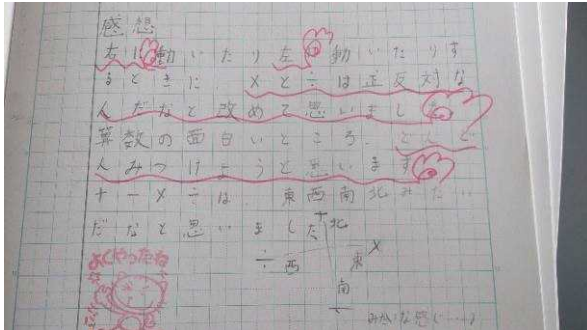 感想
右に動いたり左に動いたりす
るときに ×と÷は正反対な
んだなと改めて思いました
算数の面白いところ、どんど
んみつけようと思います
+-×÷は、東西南北みたい
だなと思いました
北
×
÷ 西 東
南
みたいな感じ…
よくやったね